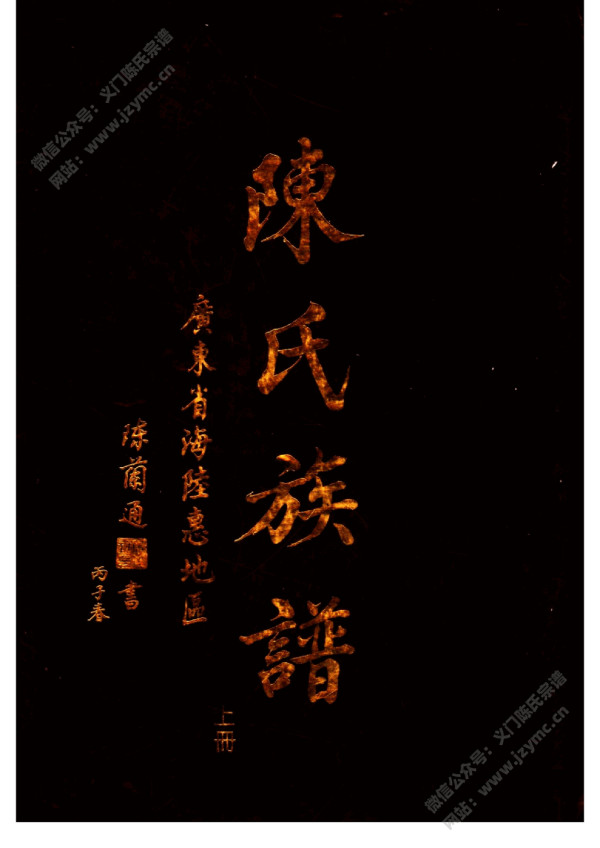 微信公众号：义门陈氏宗谱
网站：www.jzymc.cn
陳氏族譜
上冊
廣東省海陸惠地區
陈蘭通
書
丙子春
微信公众号：义门陈氏宗谱
网站：www.jzymc.cn